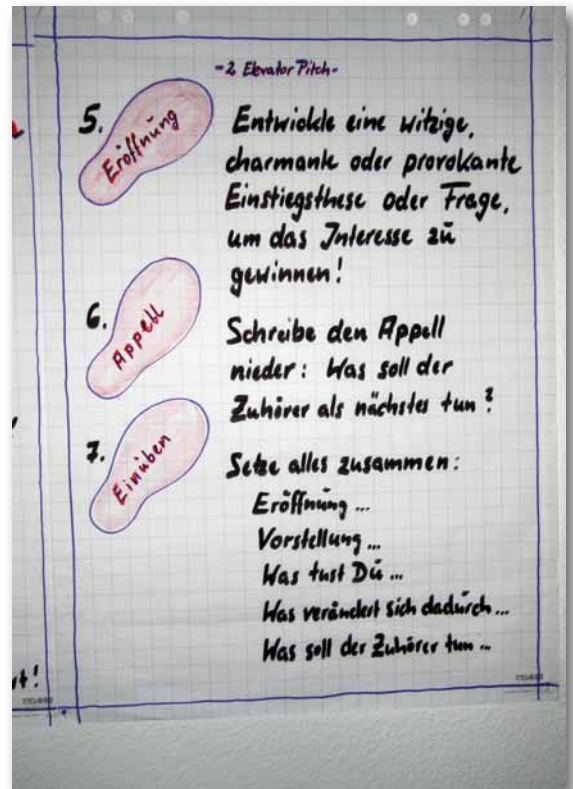 -2 Elevator Pitch-
5. Eröffnung
Entwickle eine witzige,
charmante oder provokante
Einstiegsthese oder Frage,
um das Interesse zu
gewinnen!
6. Appell
Schreibe den Appell
nieder: Was soll der
Zuhörer als nächstes tun?
7. Einüben
Setze alles zusammen:
Eröffnung ...
Vorstellung ...
Was tust Du ...
Was verändert sich dadurch ...
Was soll der Zuhörer tun ...